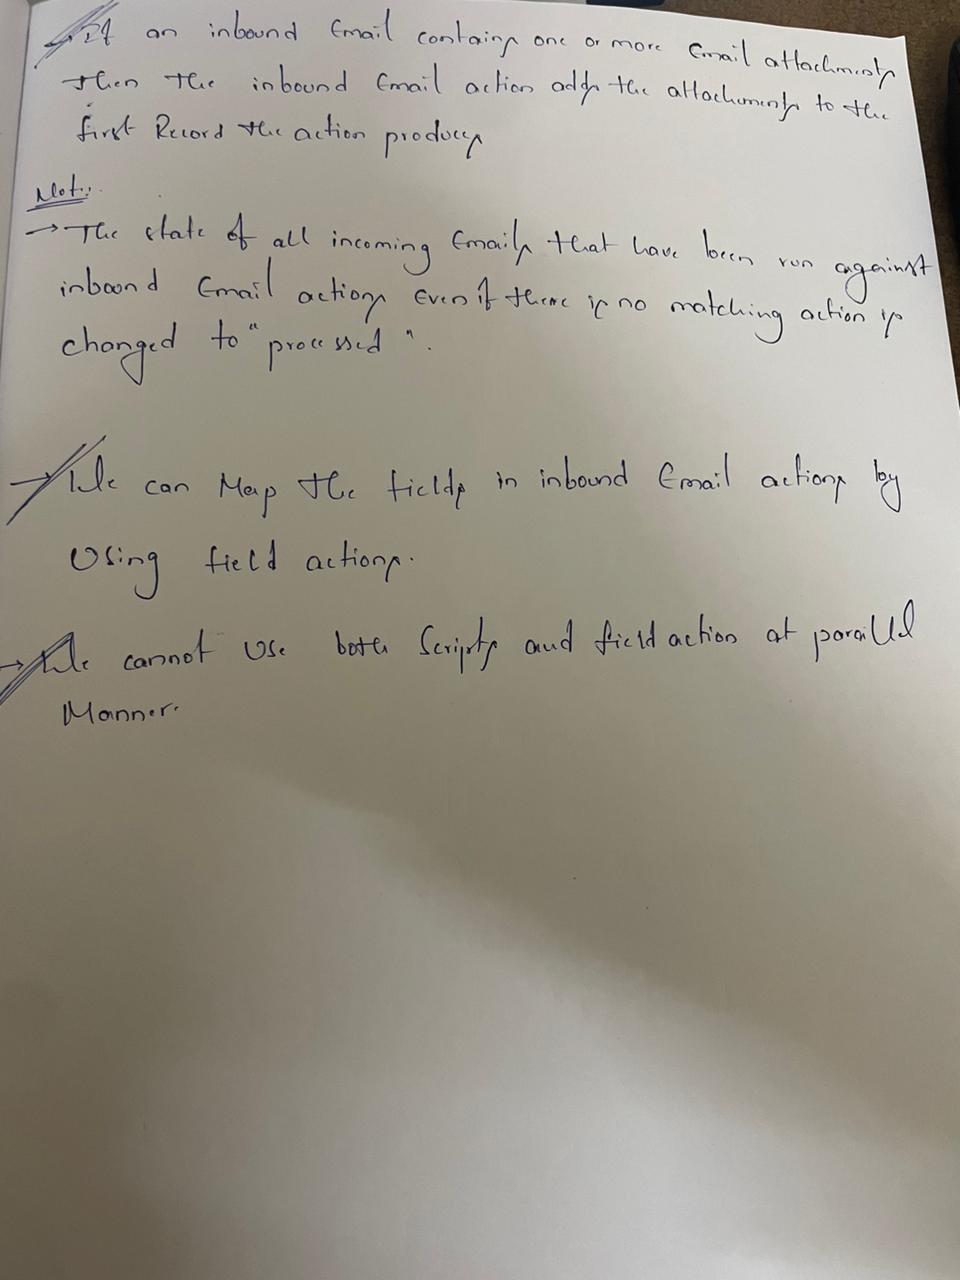 → If an inbound Email contains one or more Email attachments
then the inbound Email action adds the attachments to the
first Record the action produces
Note:
→ The state of all incoming Emails that have been run against
inbound Email actions Even if there is no matching action is
changed to "processed".
→ We can Map the fields in inbound Email actions by
Using field actions.
→ We cannot Use both Scripts and field action at parallel
Manner.